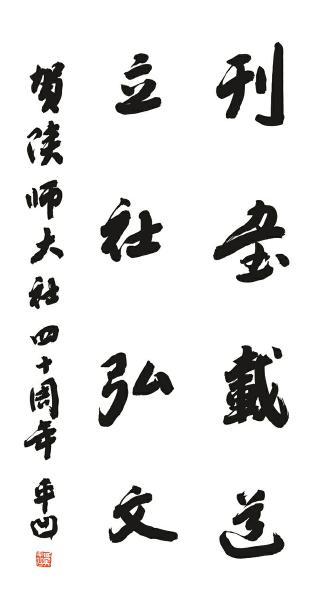 刊書載道
立社弘文
賀陝師大社四十周年 平凹